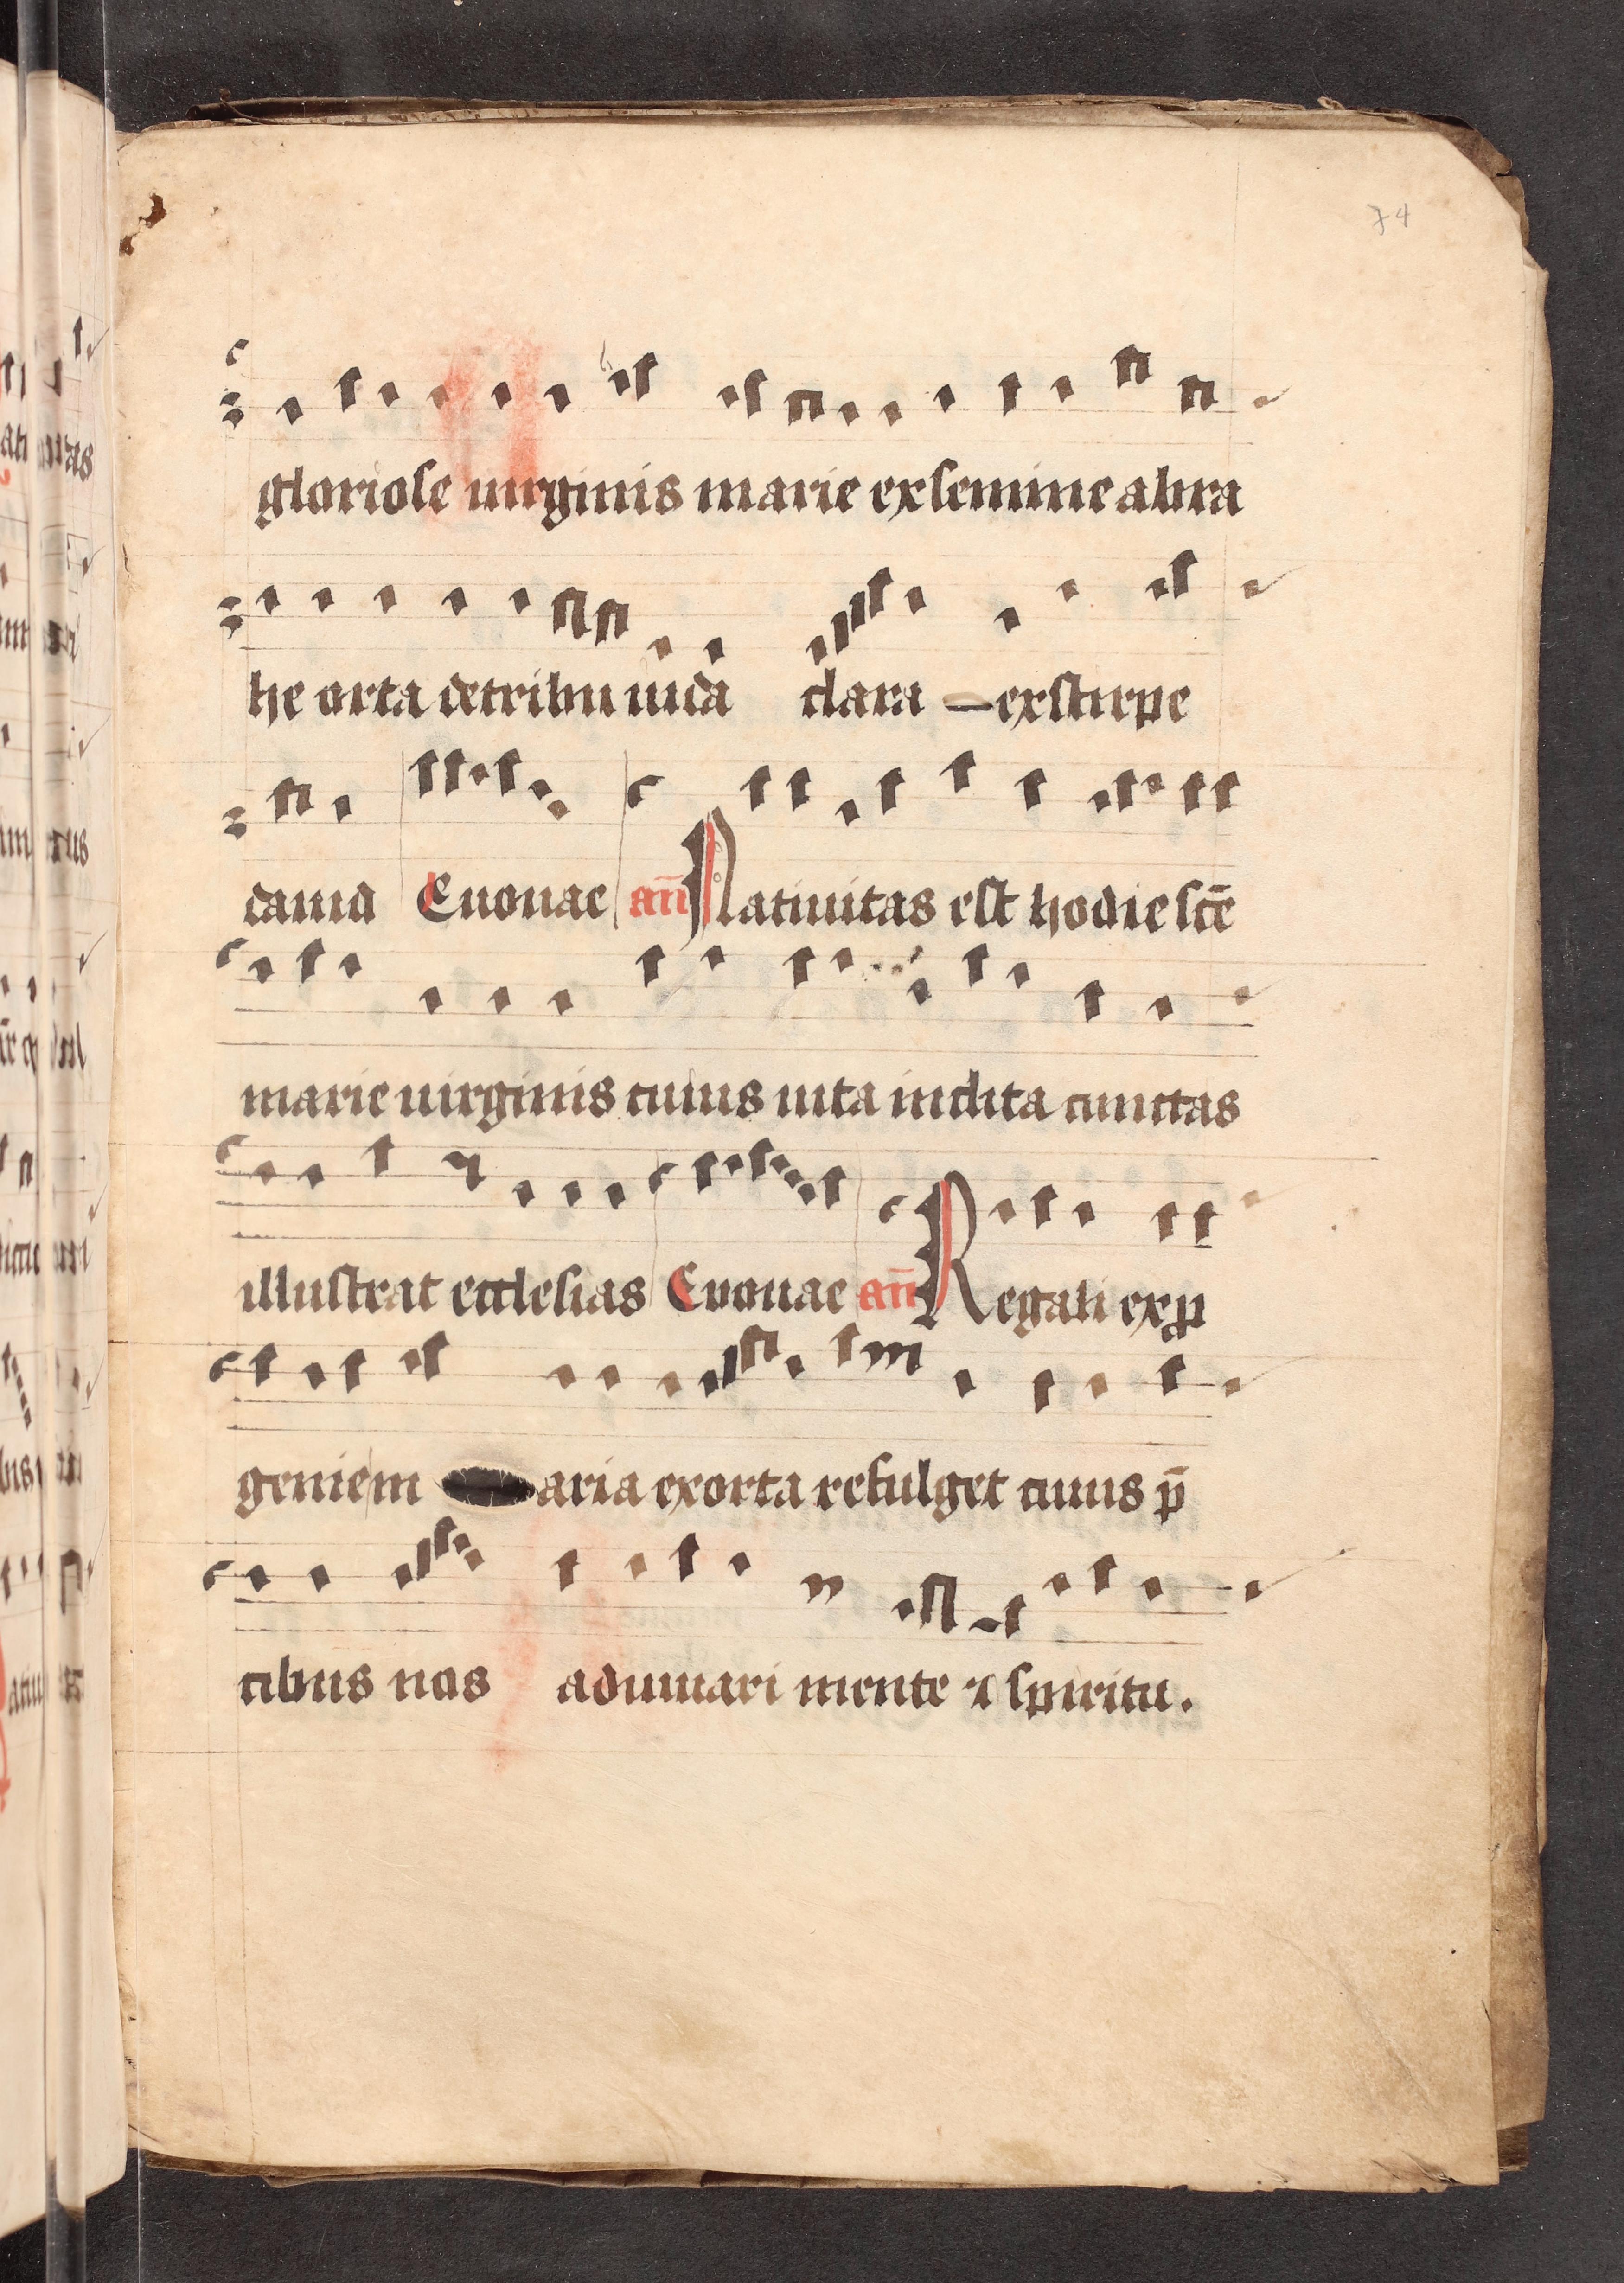 74
gloriose uirginis marie ex semine abra
he orta de tribu iuda clara ex stirpe
dauid Euouae an̄ Natiuitas est hodie sc̄e
marie uirginis cuius uita inclita cunctas
illustrat ecclesias Euouae an̄ Regali ex ꝓ
geniem aria exorta refulget cuius p̄
cibus nos adiuuari mente ⁊ spiritu.